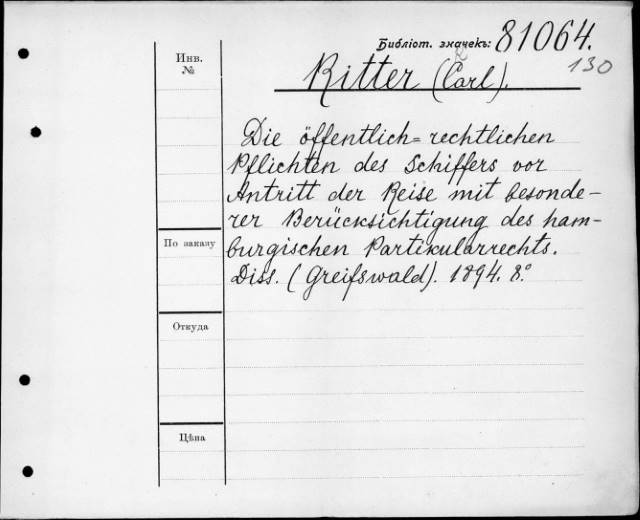 Библіот. значекъ: 81064.
130
Инв.
№
Ritter (Carl).
Die öffentlich=rechtlichen
Pflichten des Schiffers vor
Antritt der Reise mit besonde-
rer Berücksichtigung des ham-
По заказу
burgischen Partikularrechts.
Diss. (Greifswald). 1894. 8.º
Откуда
Цѣна